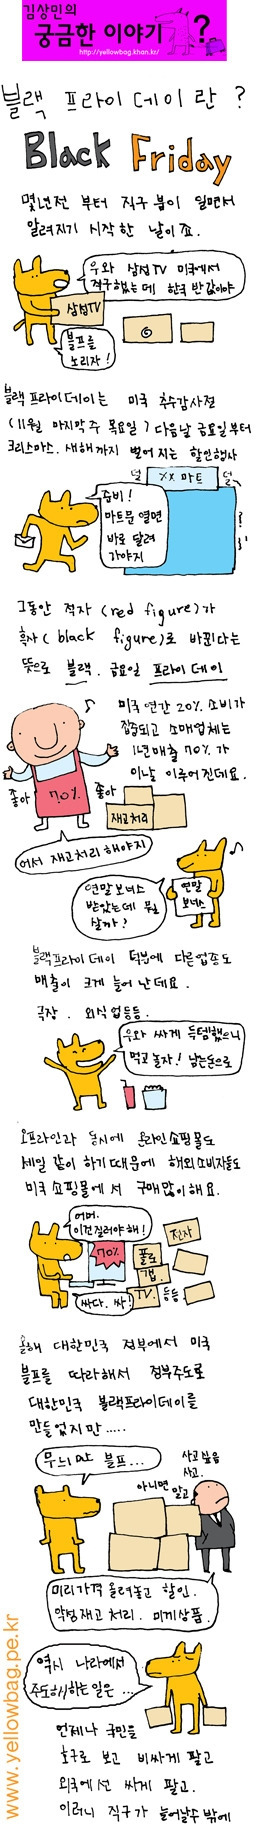 김상민의
궁금한 이야기
?
http://yellowbag.khan.kr/
블랙 프라이데이란 ?
Black Friday
몇년전 부터 직구 붐이 일면서
알려지기 시작한 날이죠.
우와 삼성TV 미국에서
직구했는데 한국 반값이야
삼성TV
블프를
노리자!
블랙프라이데이는 미국 추수감사절
(11월 마지막주 목요일) 다음날 금요일부터
크리스마스. 새해까지 벌어지는 할인행사
덜 XX 마트 덜
준비!
마트문 열면
바로 달려
가야지
그동안 적자 (red figure)가
흑자 (black figure)로 바뀐다는
뜻으로 블랙. 금요일 프라이데이
미국 연간 20% 소비가
집중되고 소매업체는
1년매출 70%가
이날 이루어진데요.
좋아 70% 좋아
재고처리
어서 재고처리 해야지
연말보너스
받았는데 뭘
살까?
연말
보너스
블랙프라이데이 덕분에 다른업종도
매출이 크게 늘어 난데요.
극장. 외식업등등.
우와 싸게 득템했으니
먹고 놀자! 남는돈으로
오프라인과 동시에 온라인쇼핑몰도
세일 같이 하기때문에 해외소비자들도
미국 쇼핑몰에서 구매많이해요.
어머.
이건질러야해!
70%
전자
폴로
갭.
TV. 등등
싸다. 싸!
올해 대한민국 정부에서 미국
블프를 따라해서 정부주도로
대한민국 블랙프라이데이를
만들었지만.....
무늬만 블프...
사고싶음
사고.
아니면 말고
미리가격 올려놓고 할인.
악성재고 처리. 미끼상품.
역시 나라에서
주도해하는 일은...
언제나 국민을
호구로 보고 비싸게 팔고
외국에선 싸게 팔고.
이러니 직구가 늘어날수 밖에
www.yellowbag.pe.kr